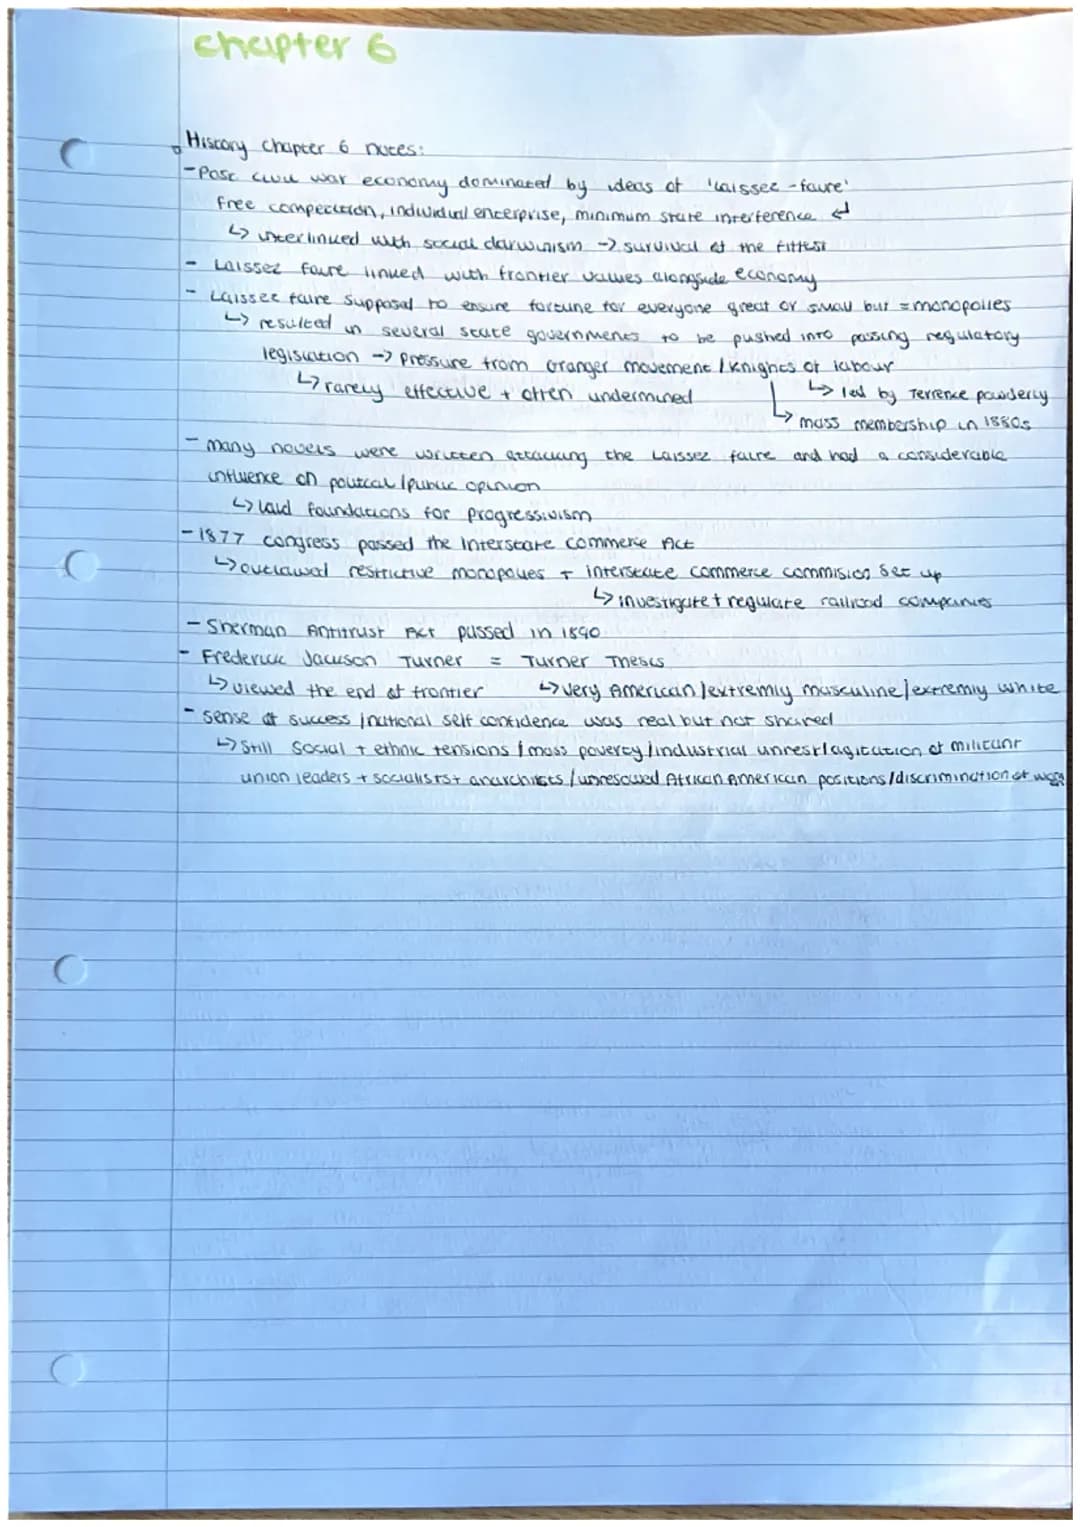 chapter 6
History chapter 6 notes:
-Post civil war economy dominated by ideas of 'laissez-faire'
free competition, individual enterprise, minimum state interference ↵
↳ interlinked with social darwinism → survival of the fittest
- Laissez faire linked with frontier values alongside economy
- Laissez faire supposed to ensure fortune for everyone great or small but = monopolies
↳ resulted in several state governments to be pushed into passing regulatory
legislation → pressure from Granger movement / knights of labour
↳ rarely effective + often undermined ↳ led by Terrence powderly
↳ mass membership in 1880s
- many novels were written attacking the Laissez faire and had a considerable
influence on poltical / public opinion
↳ laid foundations for progressivism
- 1877 congress passed the Interstate commerce Act
↳ outlawed restrictive monopolies + interstate commerce commision set up
↳ investigate + regulate railroad companies
- Sherman Antitrust Act passed in 1890
- Frederick Jackson Turner = Turner Thesis
↳ viewed the end of frontier ↳ very American / extremly masculine / extremly white
- sense of success / national self confidence was real but not shared
↳ Still social + ethnic tensions / mass poverty / industrial unrest / agitation of militant
union leaders + socialists + anarchists / unresolved African American positions / discrimination of